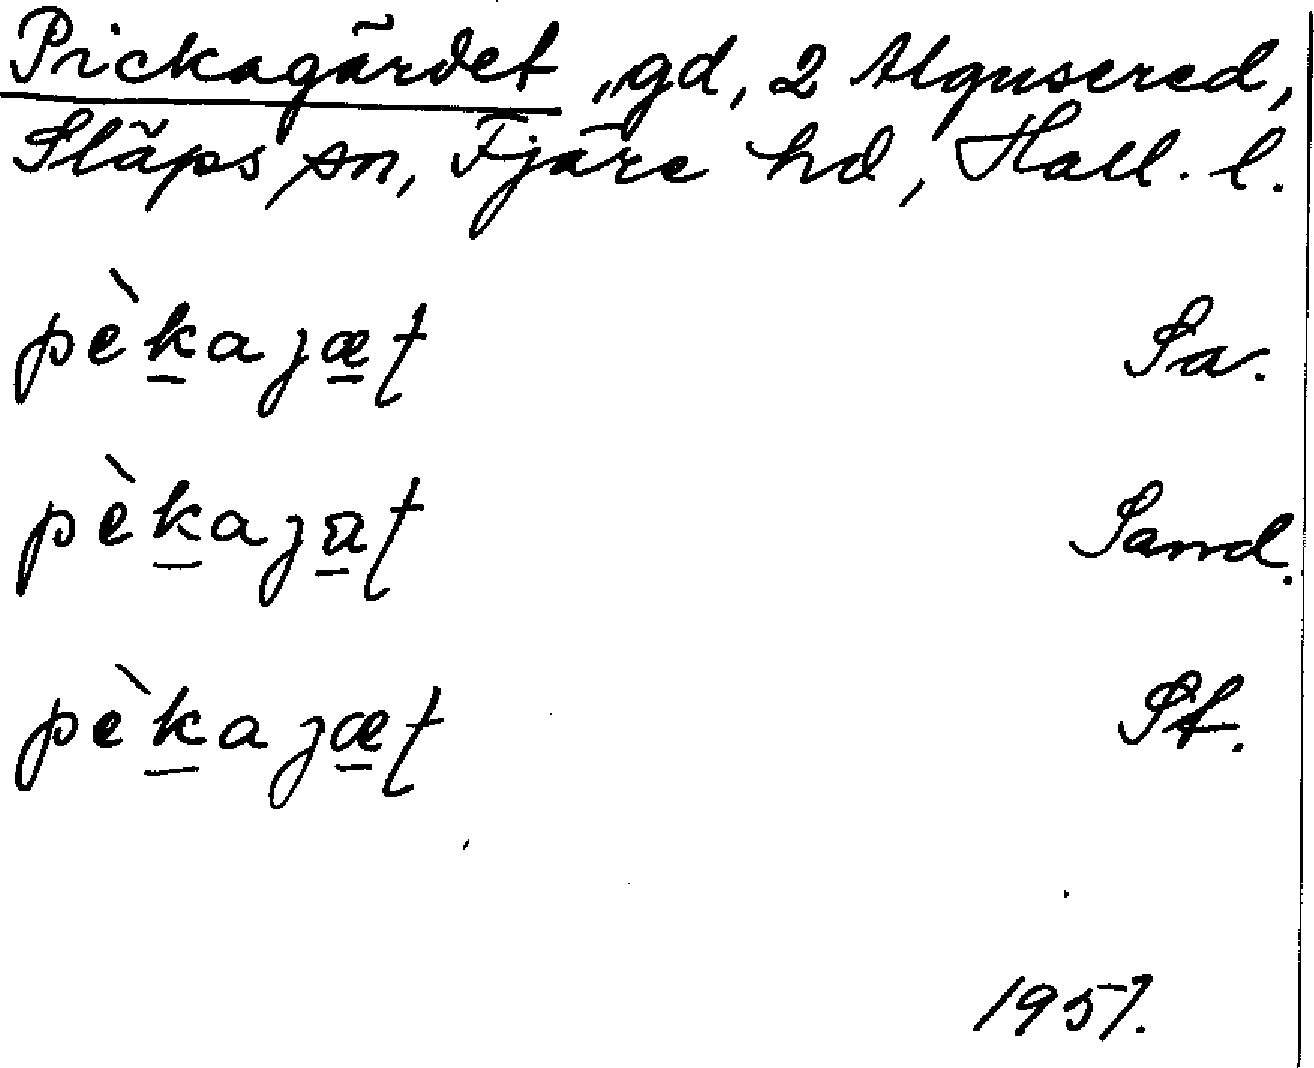 Pickagärdet, gd, 2 Algusered,
Släps sn, Fjäre hd, Hall. l.
pèkajæt Sa.
pèkajat Sand.
pèkajæt St.
1957.